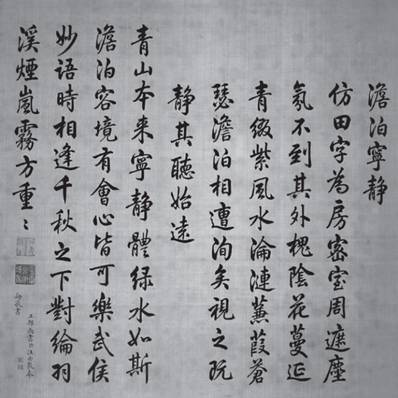 澹泊寧靜
仿田字為房密室周遮塵
氛不到其外槐陰花蔓延
青綴紫風水淪漣蒹葭蒼
瑟澹泊相遭洵矣視之既
靜其聽始遠
青山本來寧靜體綠水如斯
澹泊容境有會心皆可樂武侯
妙語時相逢千秋之下對綸羽
溪煙嵐霧方重〻
工部尚書臣汪由敦奉
敬書